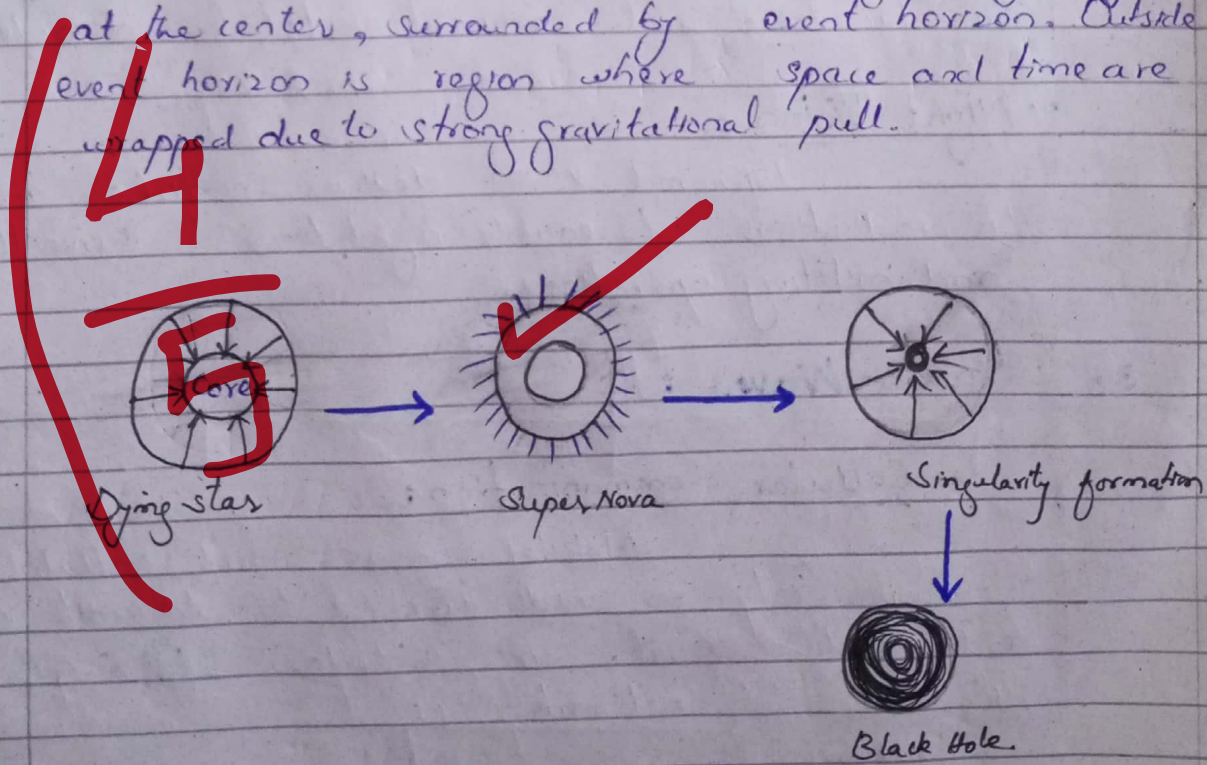 at the center, surrounded by event horizon. Outside
event horizon is region where space and time are
wrapped due to strong gravitational pull.
4
5
Core
Dying star
Super Nova
Singularity formation
Black Hole.